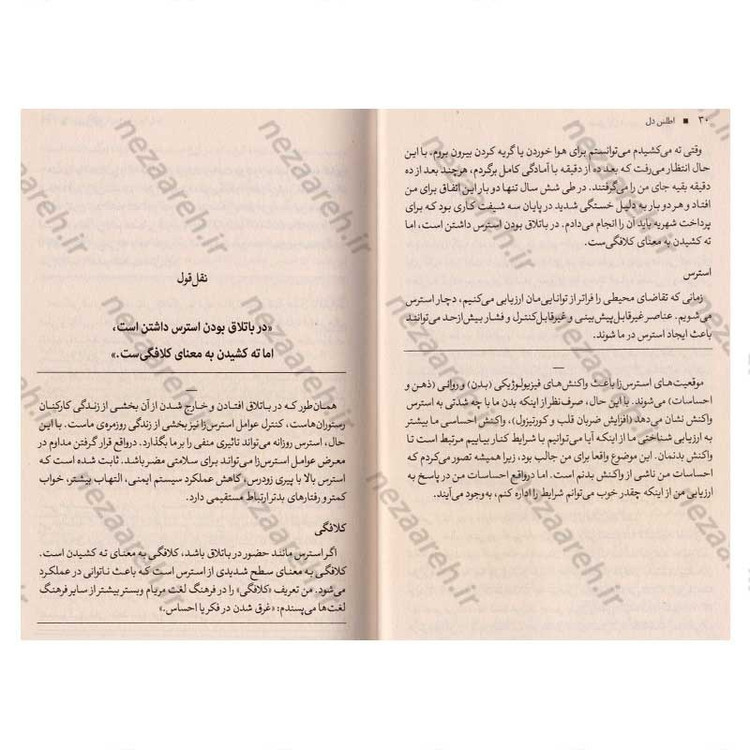 ۳۰ ■ اطلس دل
وقتی ته می‌کشیدم می‌توانستم برای هوا خوردن یا گریه کردن بیرون بروم، با این
حال انتظار می‌رفت که بعد ده از دقیقه با آمادگی کامل برگردم، هرچند بعد از ده
دقیقه بقیه جای من را می‌گرفتند. در طی شش سال تنها دو بار این اتفاق برای من
افتاد و هر دو بار به دلیل خستگی شدید در پایان سه شیفت کاری بود که برای
پرداخت شهریه باید آن را انجام می‌دادم. در باتلاق بودن استرس داشتن است، اما
ته کشیدن به معنای کلافگی‌ست.
استرس
زمانی که تقاضای محیطی را فراتر از توانایی‌مان ارزیابی می‌کنیم، دچار استرس
می‌شویم. عناصر غیرقابل‌پیش‌بینی و غیرقابل‌کنترل و فشار بیش‌ازحد می‌توانند
باعث ایجاد استرس در ما شوند.
موقعیت‌های استرس‌زا باعث واکنش‌های فیزیولوژیکی (بدن) و روانی (ذهن و
احساسات) می‌شوند. با این حال، صرف‌نظر از اینکه بدن ما با چه شدتی به استرس
واکنش نشان می‌دهد (افزایش ضربان قلب و کورتیزول)، واکنش احساسی ما بیشتر
به ارزیابی شناختی ما از اینکه آیا می‌توانیم با شرایط کنار بیاییم مرتبط است تا
واکنش بدنمان. این موضوع واقعا برای من جالب بود، زیرا همیشه تصور می‌کردم که
احساسات من ناشی از واکنش بدنم است. اما درواقع احساسات من در پاسخ به
ارزیابی من از اینکه چقدر خوب می‌توانم شرایط را اداره کنم، به‌وجود می‌آیند.
نقل‌قول
«در باتلاق بودن استرس داشتن است،
اما ته کشیدن به معنای کلافگی‌ست.»
همان‌طور که در باتلاق افتادن و خارج شدن از آن بخشی از زندگی کارکنان
رستوران‌هاست، کنترل عوامل استرس‌زا نیز بخشی از زندگی روزمره‌ی ماست. با این
حال، استرس روزانه می‌تواند تاثیری منفی را بر ما بگذارد. درواقع قرار گرفتن مداوم در
معرض عوامل استرس‌زا می‌تواند برای سلامتی مضر باشد. ثابت شده است که
استرس بالا با پیری زودرس، کاهش عملکرد سیستم ایمنی، التهاب بیشتر، خواب
کمتر و رفتارهای بدتر ارتباط مستقیمی دارد.
کلافگی
اگر استرس مانند حضور در باتلاق باشد، کلافگی به معنای ته کشیدن است.
کلافگی به معنای سطح شدیدی از استرس است که باعث ناتوانی در عملکرد
می‌شود. من تعریف «کلافگی» را در فرهنگ لغت مریام وبستر بیشتر از سایر فرهنگ
لغت‌ها می‌پسندم: «غرق شدن در فکر یا احساس.»
nezaareh.ir
nezaareh.ir
nezaareh.ir
nezaareh.ir
nezaareh.ir
nezaareh.ir